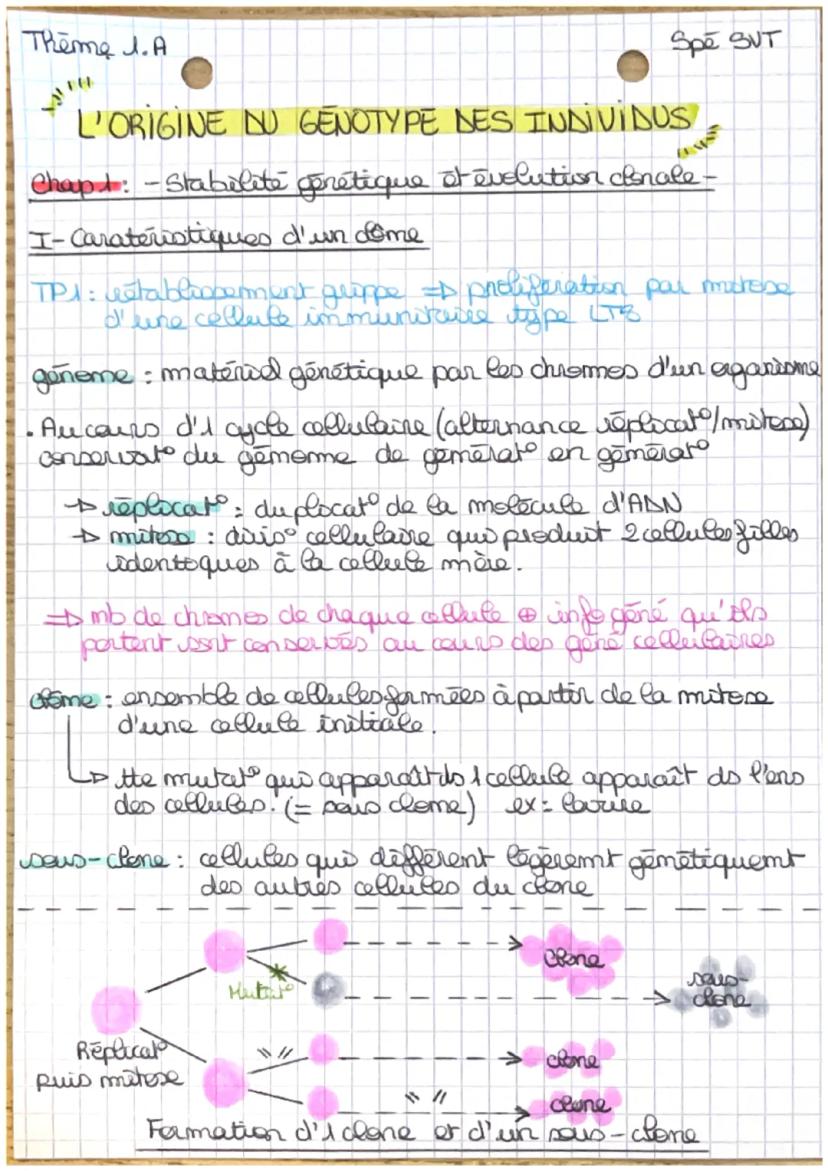 Thème 1.A
Spé SVT
L'ORIGINE DU GÉNOTYPE DES INDIVIDUS
Chap 1 : - Stabilité génétique et évolution clonale -
I- Caratéristiques d'un clône
TP1 : rétablissement grippe => prolifération par mitose
d'une cellule immunitaire type LT8
génome : matériel génétique par les chromes d'un organisme
. Au cours d'1 cycle cellulaire (alternance réplicat° / mitose)
conservat° du génome de générat° en générat°
→ réplicat° : duplocat° de la molécule d'ADN
→ mitose : divis° cellulaire qui produit 2 cellules filles
identoques à la cellule mère.
=> nb de chromes de chaque cellule ⊕ info géné qu'ils
portent sont conservés au cours des géné cellulaires
clône : ensemble de cellules formées à partir de la mitose
d'une cellule initiale.
↳ tte mutat° qui apparaît ds 1 cellule apparaît ds l'ens
des cellules. (= sous clone) ex =
sous-clone : cellules qui diffèrent légèremt génétiquemt
des autres cellules du clone
clone
Mutat°
sous-
clone
Réplicat°
puis mitose
" "
clone
" "
clone
Formation d'1 clone et d'un sous-clone